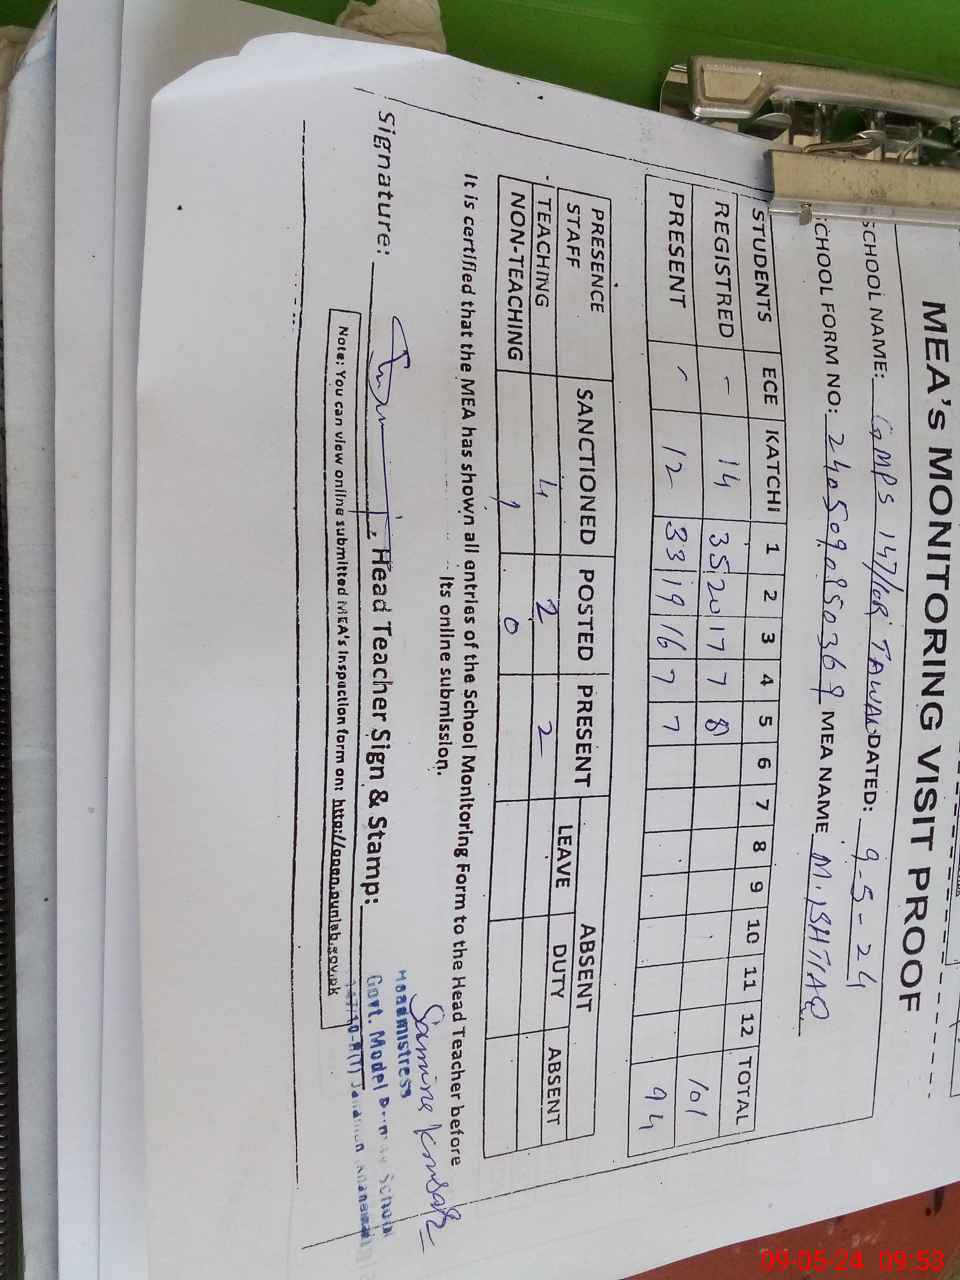 MEA's MONITORING VISIT PROOF
SCHOOL NAME: GMPS 147/10R TAWAN DATED: 9-5-24
SCHOOL FORM NO: 2405090850369 MEA NAME M. ISHTIAQ
STUDENTS ECE KATCHI 1 2 3 4 5 6 7 8 9 10 11 12 TOTAL
REGISTRED - 14 35 20 17 7 8 101
PRESENT - 12 33 19 16 7 7 94
PRESENCE STAFF SANCTIONED POSTED PRESENT ABSENT
LEAVE DUTY ABSENT
TEACHING 4 2 2
NON-TEACHING 1 0
It is certified that the MEA has shown all entries of the School Monitoring Form to the Head Teacher before
its online submission.
Samina Kousar
Signature: Head Teacher Sign & Stamp:
Headmistress
Govt. Model Primary School
147/10-R(T) Jahanian Khanewal
Note: You can view online submitted MEA's Inspaction form on: http://open.punjab.gov.pk
09-05-24 09:53